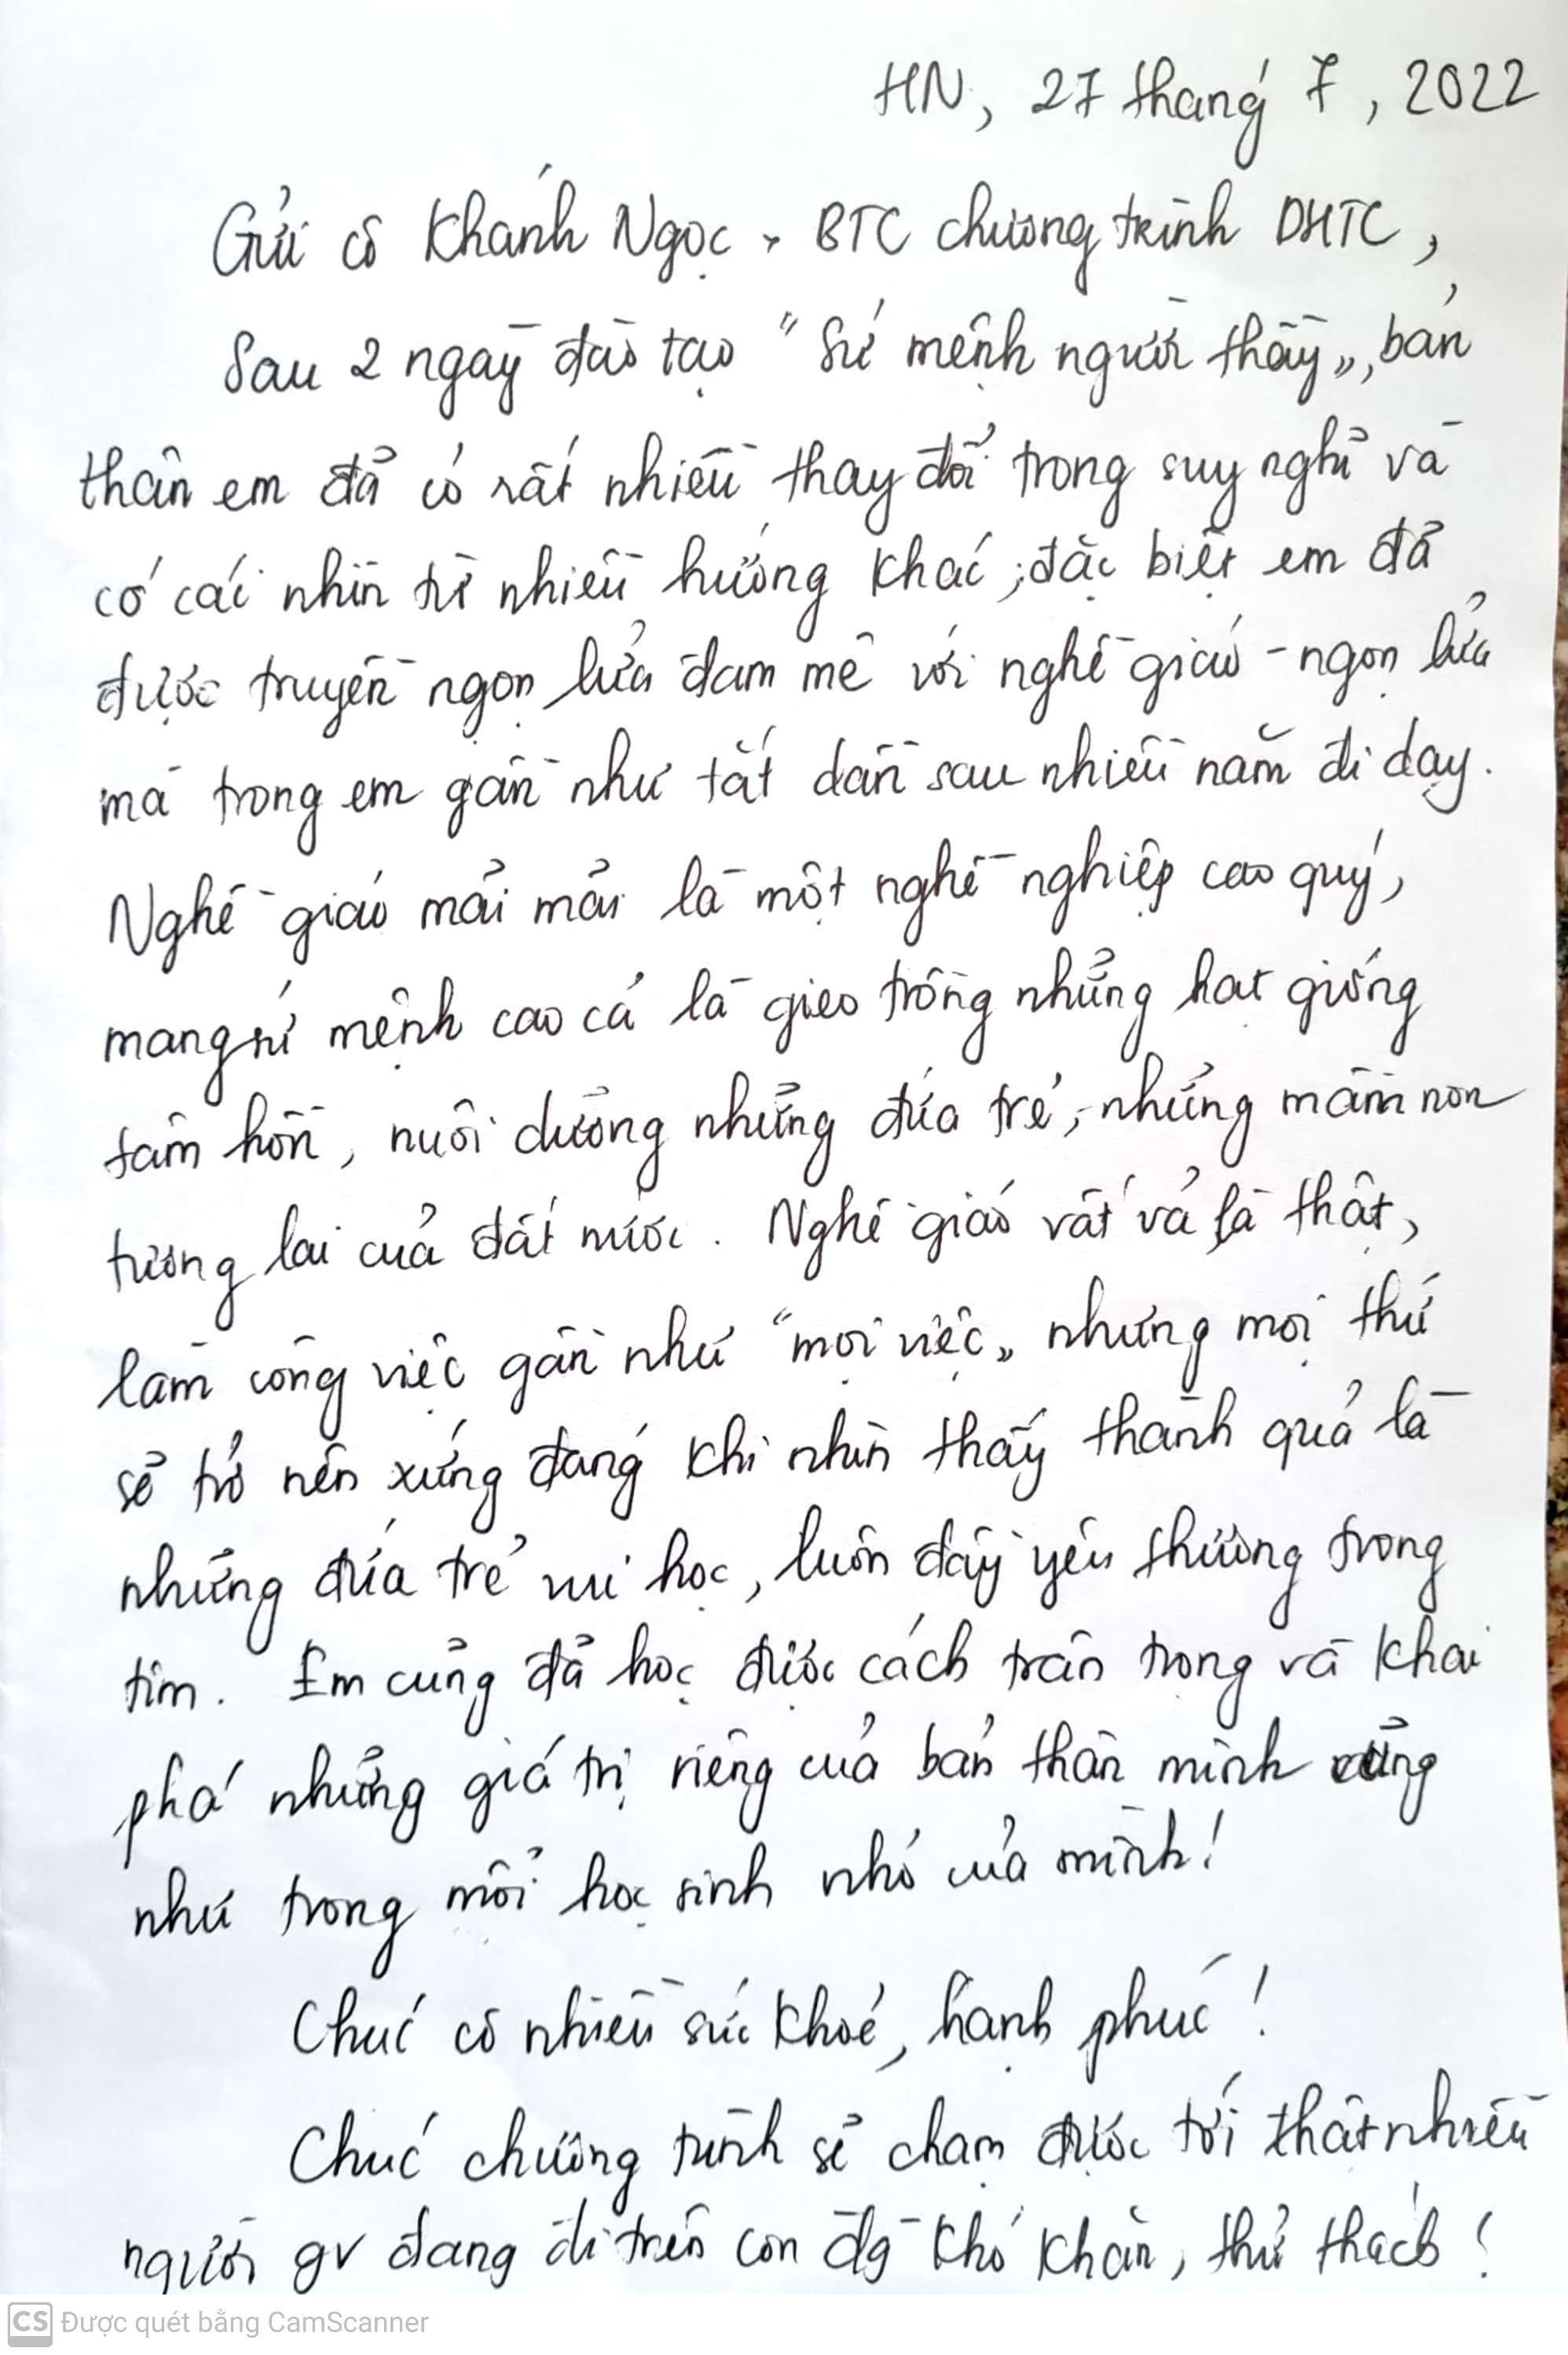 HN, 27 tháng 7, 2022
Gửi cô Khánh Ngọc + BTC chương trình DHTC,
Sau 2 ngày đào tạo "Sứ mệnh người thầy", bản
thân em đã có rất nhiều thay đổi trong suy nghĩ và
có cái nhìn từ nhiều hướng khác, đặc biệt em đã
được truyền ngọn lửa đam mê với nghề giáo - ngọn lửa
mà trong em gần như tắt dần sau nhiều năm đi dạy.
Nghề giáo mãi mãi là một nghề nghiệp cao quý,
mang sứ mệnh cao cả là gieo trồng những hạt giống
tâm hồn, nuôi dưỡng những đứa trẻ, những mầm non
tương lai của đất nước. Nghề giáo vất vả là thật,
làm công việc gần như "mọi việc" nhưng mọi thứ
sẽ trở nên xứng đáng khi nhìn thấy thành quả là
những đứa trẻ vui học, luôn đầy yêu thương trong
tim. Em cũng đã học được cách trân trọng và khai
phá những giá trị riêng của bản thân mình cũng
như trong mỗi học sinh nhỏ của mình!
Chúc cô nhiều sức khoẻ, hạnh phúc!
Chúc chương trình sẽ chạm được tới thật nhiều
người gv đang đi trên con đg khó khăn, thử thách!
CS Được quét bằng CamScanner